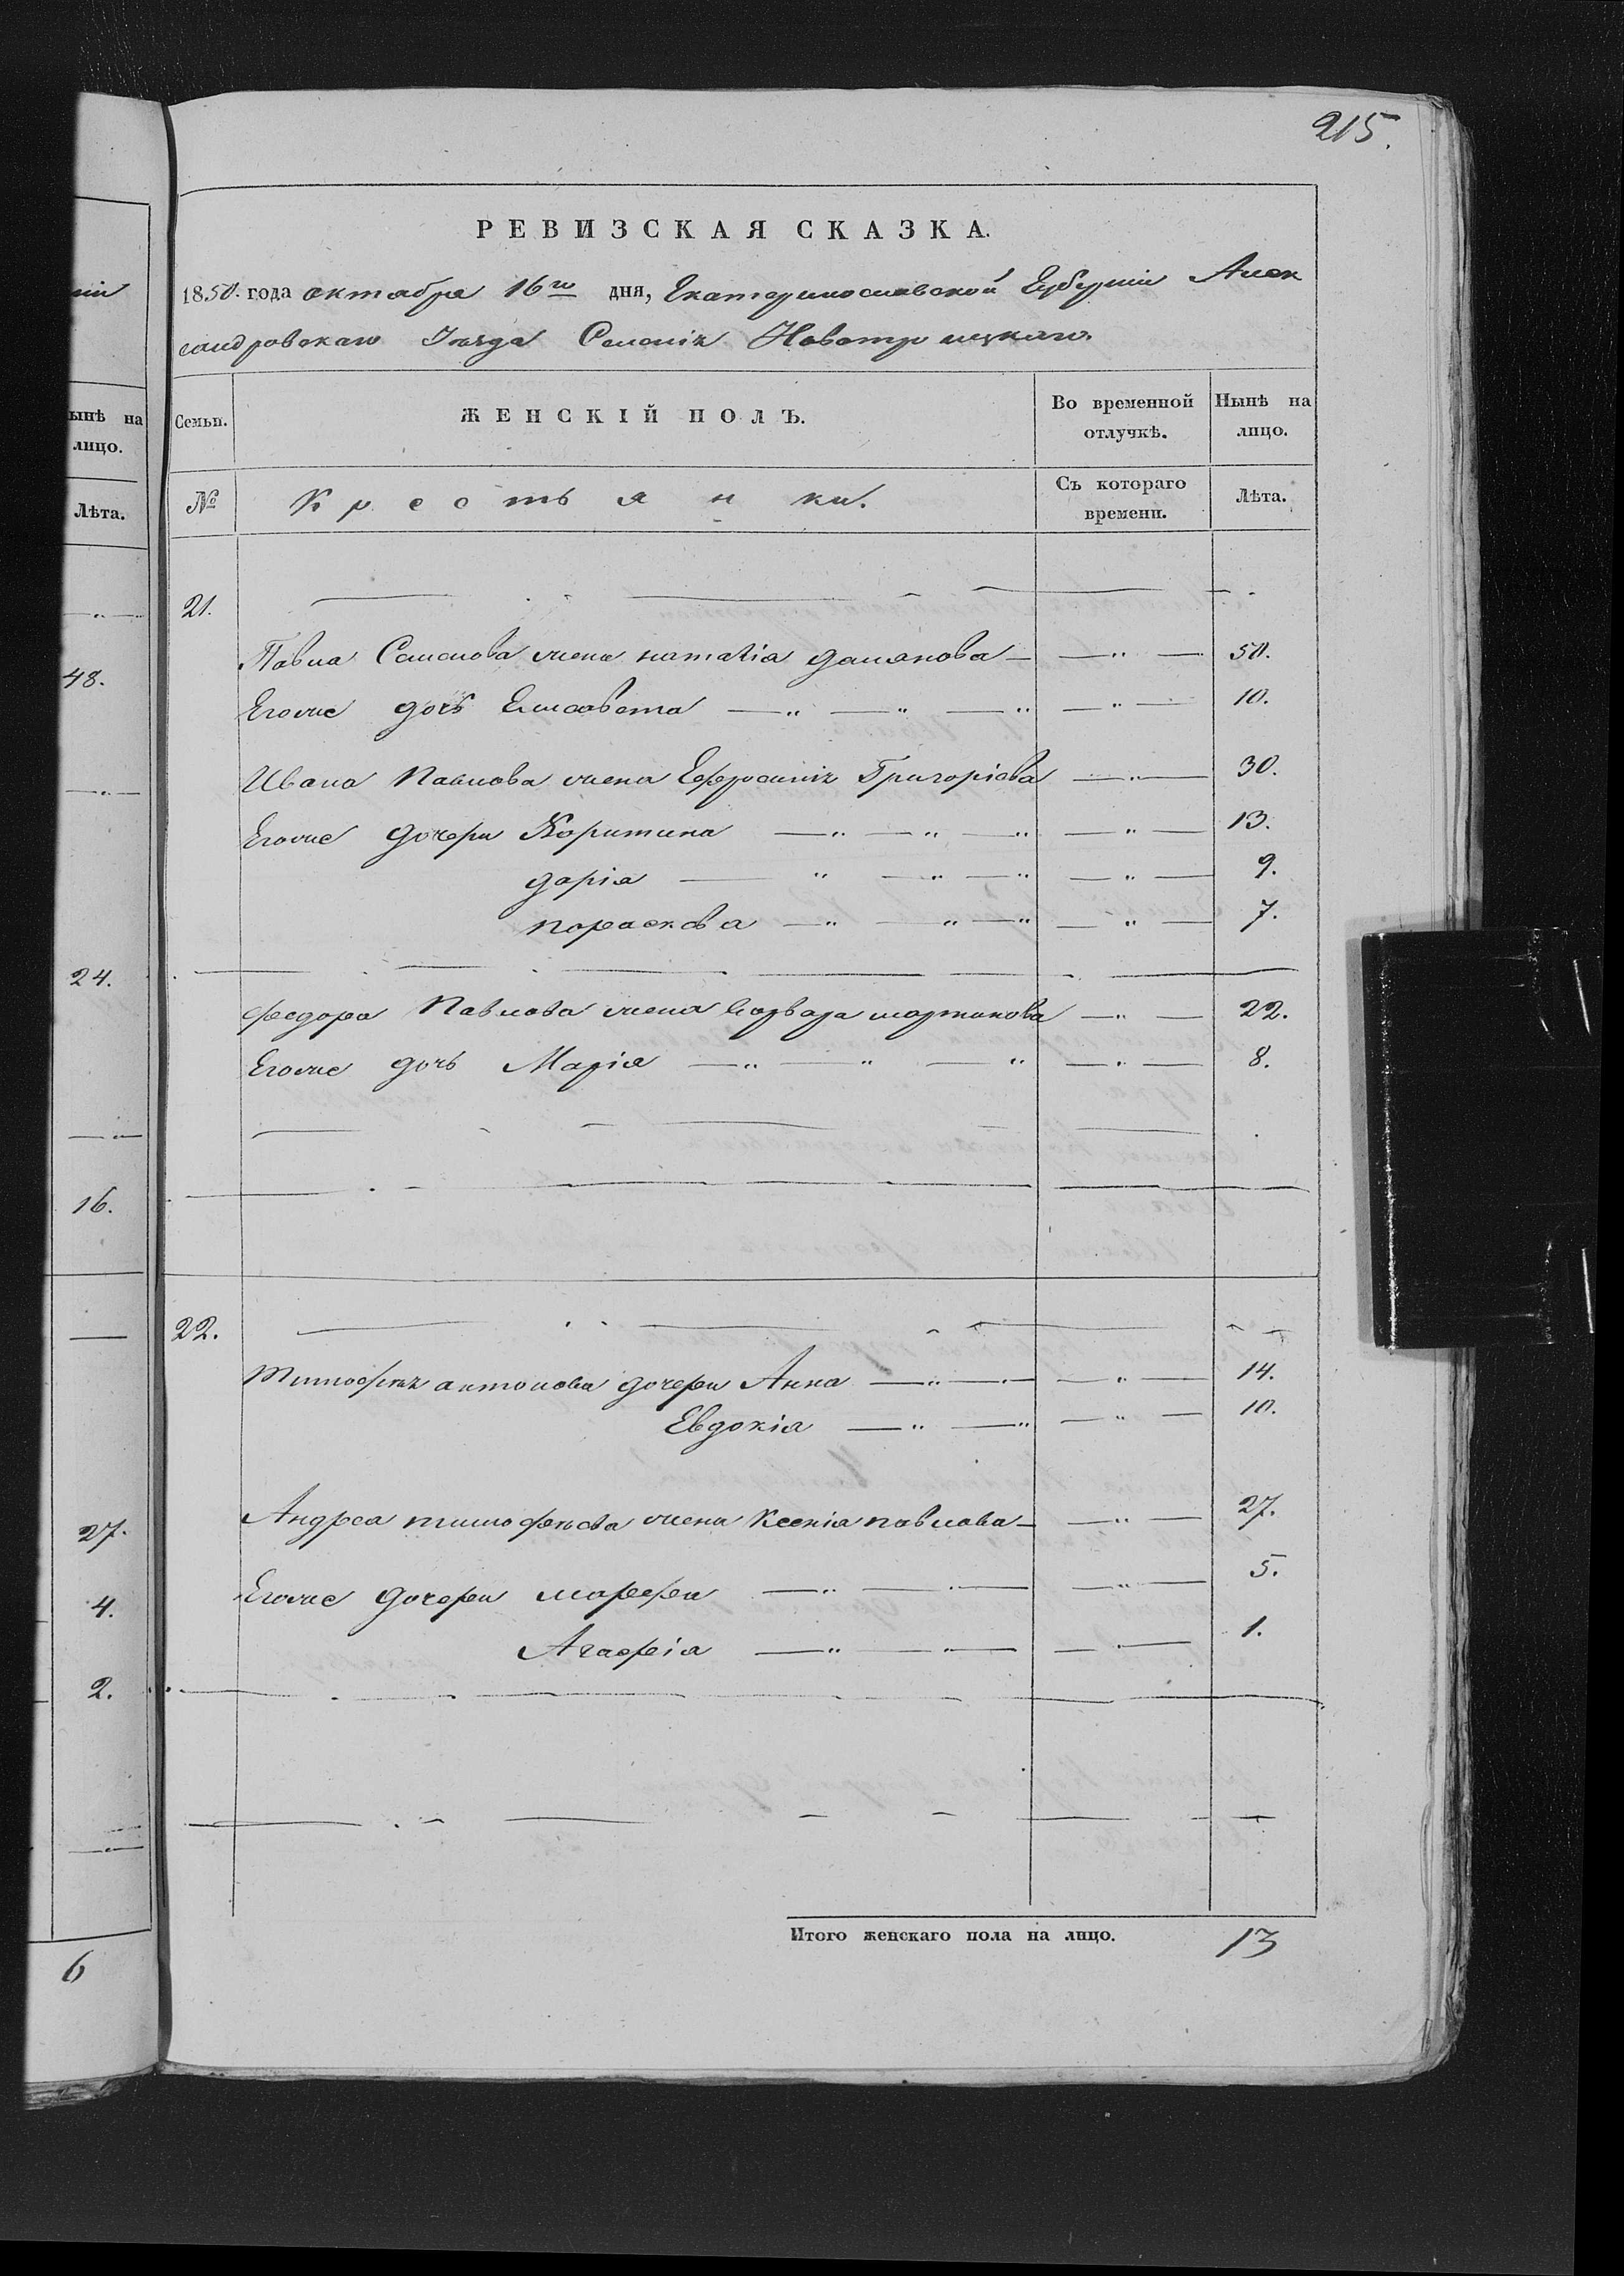 215.
РЕВИЗСКАЯ СКАЗКА.
1850. года октября 16го дня, Екатеринославской Губерніи Алек
сандровскаго Уезда Селенія Новотроицкаго.
ынѣ на
лицо.
Лѣта.
48.
24.
16.
27.
4.
2.
6
Семьи. ЖЕНСКІЙ ПОЛЪ. Во временной отлучкѣ. Нынѣ на лицо.
№ Крестьянки. Съ котораго времени. Лѣта.
21.
Павла Семенова жена наталія дамянова — „ — 50.
Егоже дочь Елисавета — „ — „ — „ — „ — 10.
Ивана Павлова жена Ефросинія Григоріева — „ — 30.
Егоже дочери Харитина — „ — „ — „ — „ — 13.
дарія — „ — „ — „ — „ — 9.
параскева — „ — „ — „ — „ — 7.
федора Павлова жена варвара мартинова — „ — 22.
Егоже дочь Марія — „ — „ — „ — „ — 8.
22.
Тимофея антонова дочери Анна — „ — „ — „ — 14.
Евдокія — „ — „ — „ — 10.
Андрея тимофеева жена Ксенія павлова — „ — 27.
Егоже дочери марфа — „ — „ — „ — 5.
Агафія — „ — „ — „ — 1.
Итого женскаго пола на лицо. 13